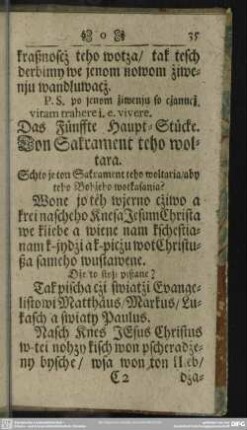 o 35
kraßnosez teho wotza/ tak tesch
derbimy we jenom nowom žiwe-
nju wandluwacž.
P. S. po jenom žiwenju so cžannej
vitam trahere i. e. vivere.
Das Fünffte Haupt-Stücke.
Von Sakrament teho wol-
tara.
Schto je ton Sakrament teho woltaria/aby
teho Bohjeho wotkasania?
Wone jo teh wjerno cžiwo a
krei nascheho Knesa Jesum Christa
we kliebe a wiene nam kschestia-
nam k-jydži a k-piczu wot Christu-
ßa sameho wustawene.
Dje to stoji pißane?
Tak pischa cži swiatži Evange-
listowi Matthäus/Markus/Lu-
kasch a swiaty Paulus.
Nasch Knes JEsus Christus
w-tei nohzy kisch won pscheradže-
ny bysche/ wsa won ton Kleb/
C 2 dža-